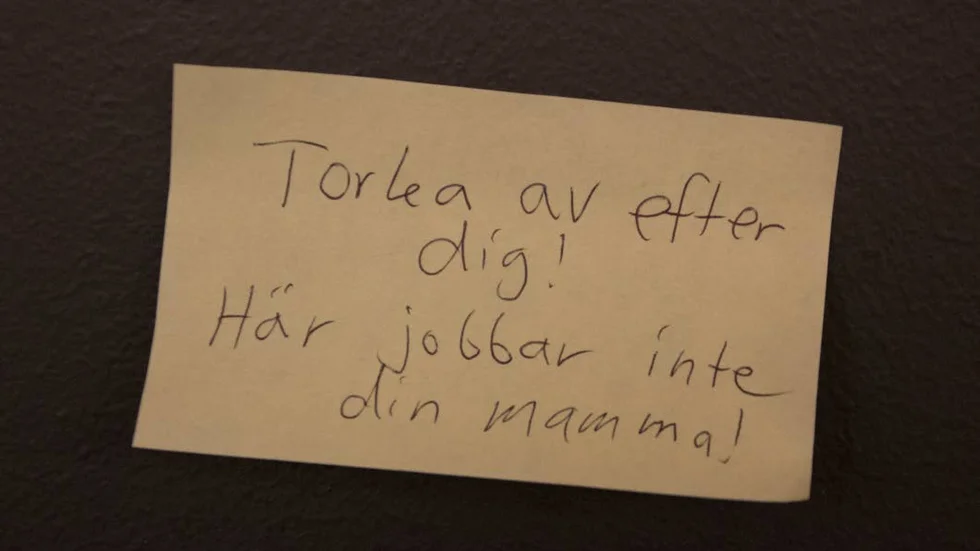 Torka av efter
dig!
Här jobbar inte
din mamma!